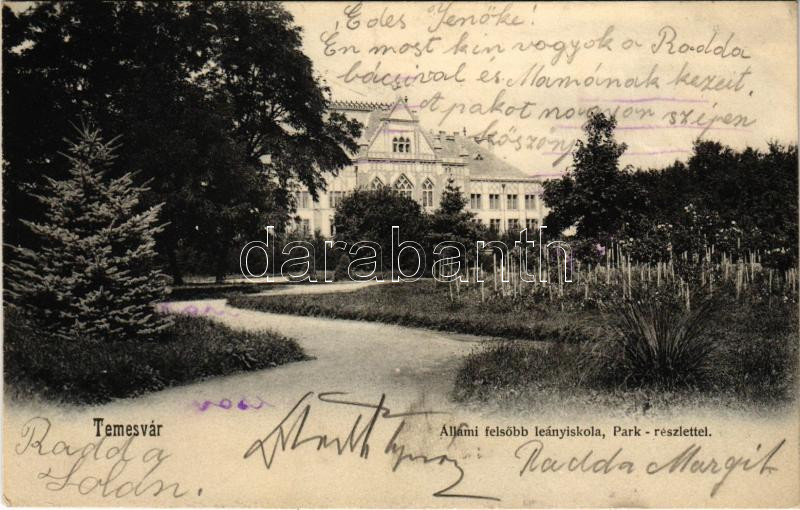 Édes Jenőke!
Én most kin vagyok a Radda
bácsival és Mamának kezeit.
A pakot nagyon szépen
köszönj
darabanth.com
Temesvár
Állami felsőbb leányiskola, Park - részlettel.
Radda
Zoltán.
Radda Margit